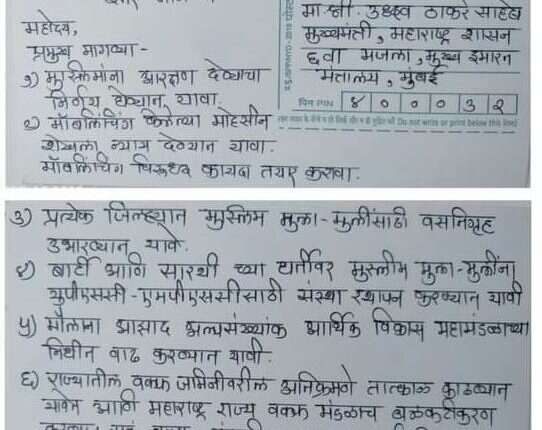 महोदय,
प्रमुख मागण्या -
१) मुस्लिमांना आरक्षण देण्याचा
निर्णय घेण्यात यावा.
२) मॉबलिंचिंग केलेल्या मोहसीन
शेखला न्याय देण्यात यावा.
मॉबलिंचिंग विरुध्द कायदा तयार करावा.
मा. श्री. उध्दव ठाकरे साहेब
मुख्यमंत्री, महाराष्ट्र शासन
६वा मजला, मुख्य इमारत
मंत्रालय, मुंबई
पिन PIN ४ ० ० ० ३ २
Do not write or print below this line
३) प्रत्येक जिल्ह्यात मुस्लिम मुला-मुलींसाठी वसतिगृह
उभारण्यात यावे.
४) बार्टी आणि सारथी च्या धर्तीवर मुस्लीम मुला-मुलींना
युपीएससी-एमपीएससीसाठी संस्था स्थापन करण्यात यावी
५) मौलाना आझाद अल्पसंख्यांक आर्थिक विकास महामंडळाच्या
निधीत वाढ करण्यात यावी.
६) राज्यातील वक्फ जमिनीवरील अतिक्रमणे तात्काळ काढण्यात
यावेत आणि महाराष्ट्र राज्य वक्फ मंडळाचे बळकटीकरण